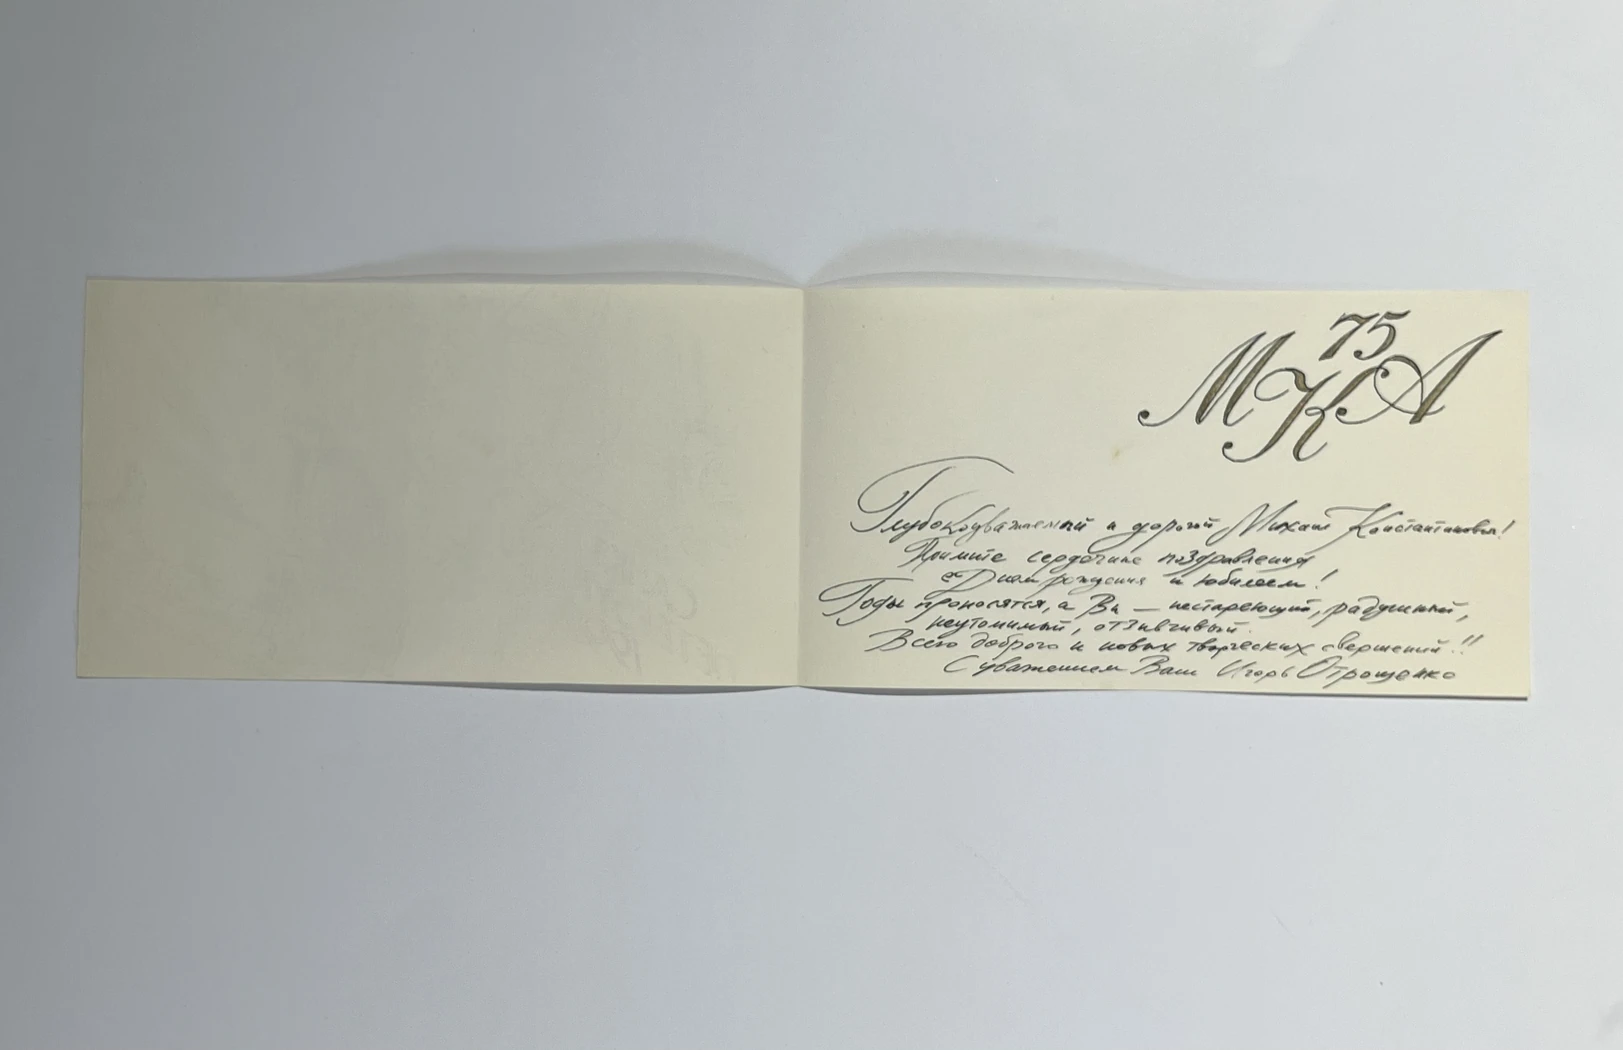 75
МКА
Глубокоуважаемый и дорогой Михаил Константинович!
Примите сердечные поздравления
с Днем рождения и юбилеем!
Годы проносятся, а Вы — нестареющий, радушный,
неутомимый, отзывчивый.
Всего доброго и новых творческих свершений!!
С уважением Ваш Игорь Отрощенко